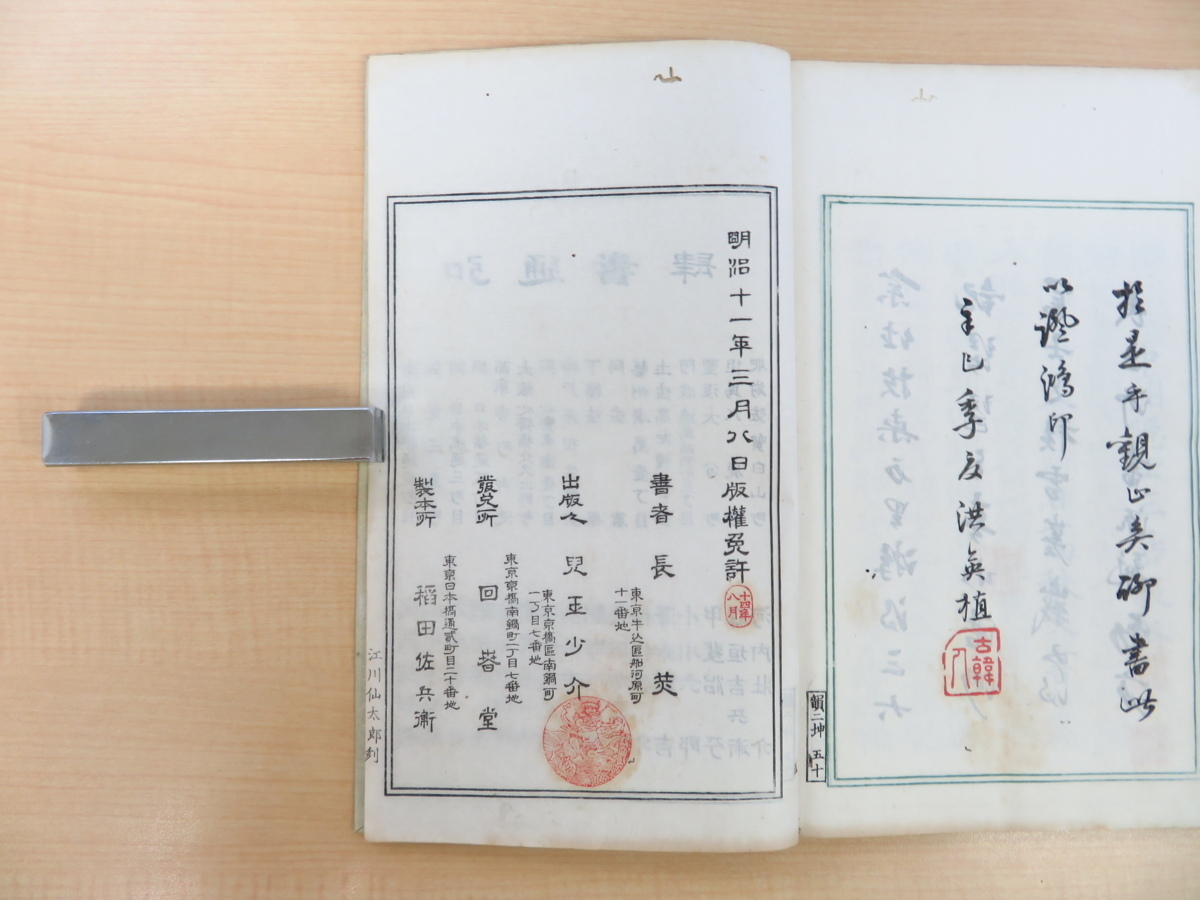 於是乎觀止矣聊書此
以證鴻印
辛巳季夏洪英植
古韓
人
韻二坤 五十
明治十一年三月八日版權免許
十四年
八月
書者 長炗
東京牛込區船河原町
十一番地
出版人 兒玉少介
東京京橋區南鍋町
一丁目七番地
發兌所 回春堂
東京京橋南鍋町一丁目七番地
製本所 稻田佐兵衛
東京日本橋通貳町目二十番地
江川仙太郎刻